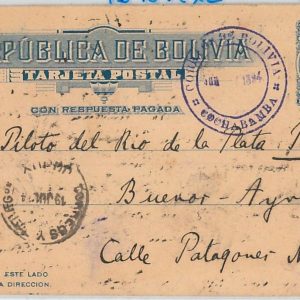 REPÚBLICA DE BOLIVIA
TARJETA POSTAL
CON RESPUESTA PAGADA
CORREOS DE BOLIVIA
COCHABAMBA
Piloto del Rio de la Plata
Buenos-Ayr
Calle Patagones
ESTE LADO
A DIRECCION.